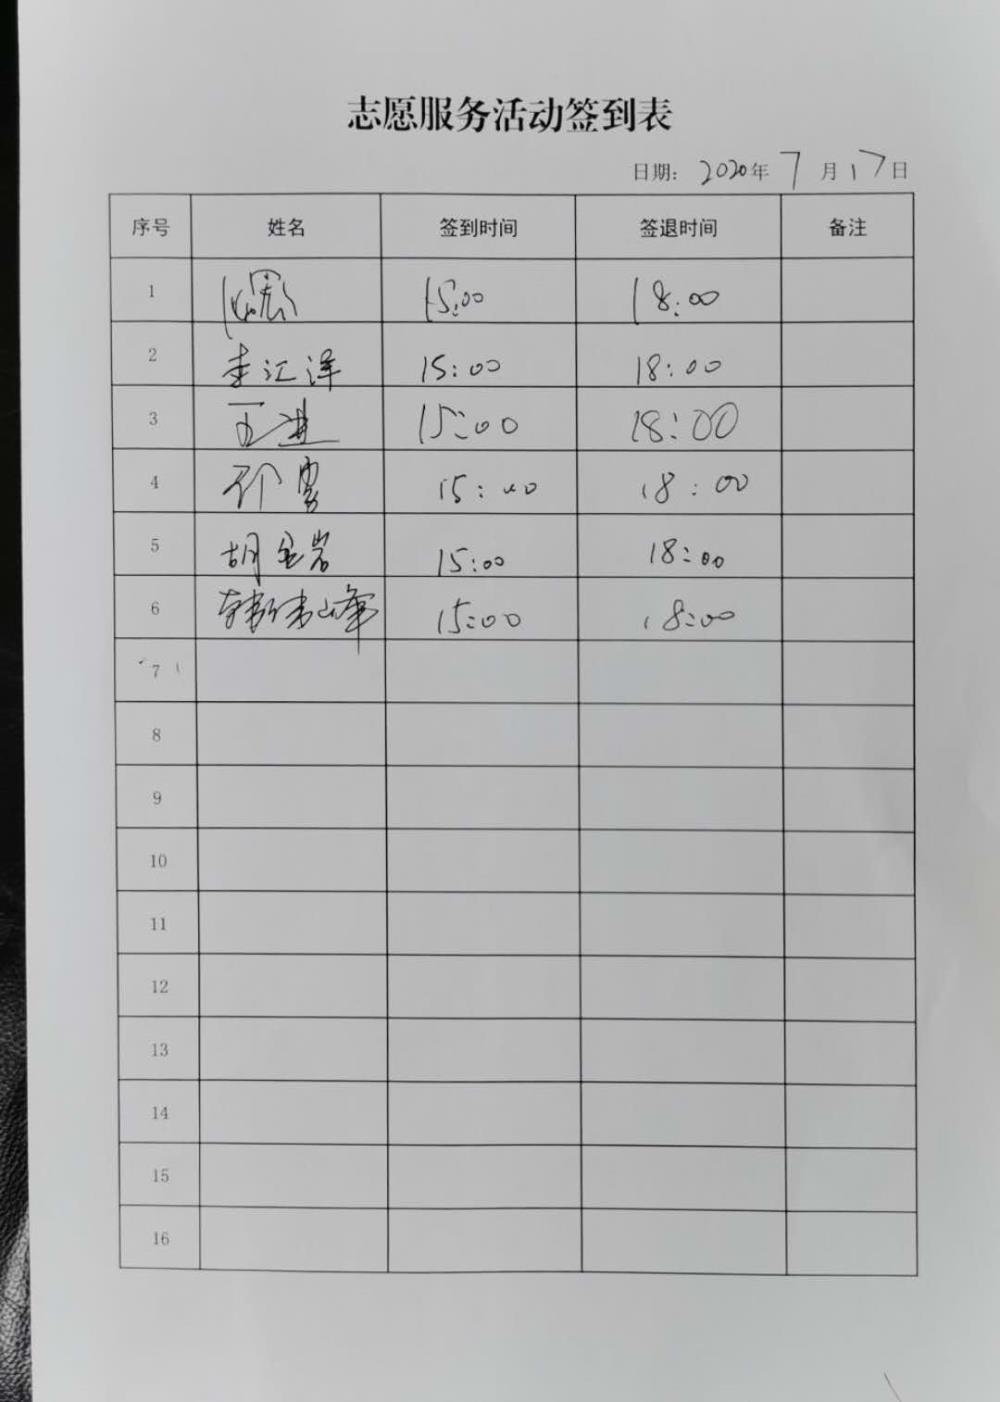 志愿服务活动签到表
日期: 2020年 7 月 17 日
序号 姓名 签到时间 签退时间 备注
1 15:00 18:00
2 李汇洋 15:00 18:00
3 王进 15:00 18:00
4 15:00 18:00
5 胡金岩 15:00 18:00
6 韩伟峰 15:00 18:00
7
8
9
10
11
12
13
14
15
16